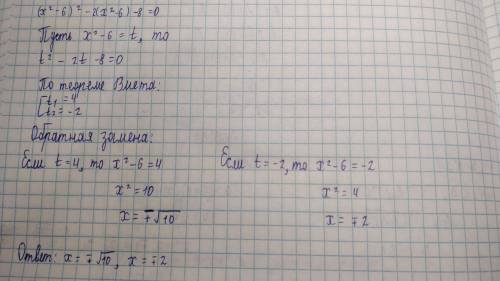 (x²-6)²-2(x²-6)-8=0
Пусть x²-6=t, то
t²-2t-8=0
По теореме Виета:
[t₁=4
t₂=-2
Обратная замена:
Если t=4, то x²-6=4
x²=10
x=∓√10
Если t=-2, то x²-6=-2
x²=4
x=∓2
Ответ: x=∓√10, x=∓2